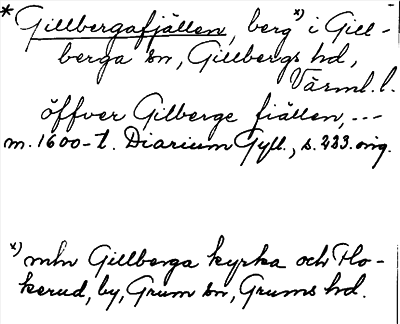 * Gillbergafjällen, berg x) i Gill-
berga sn, Gillbergs hd,
Värml. l.
öffver Gilberge fiällen, ---
m. 1600-t. Diarium Gyll., s. 233. orig.
x) mln Gillberga kyrka och Ho-
kerud, by, Grum sn, Grums hd.